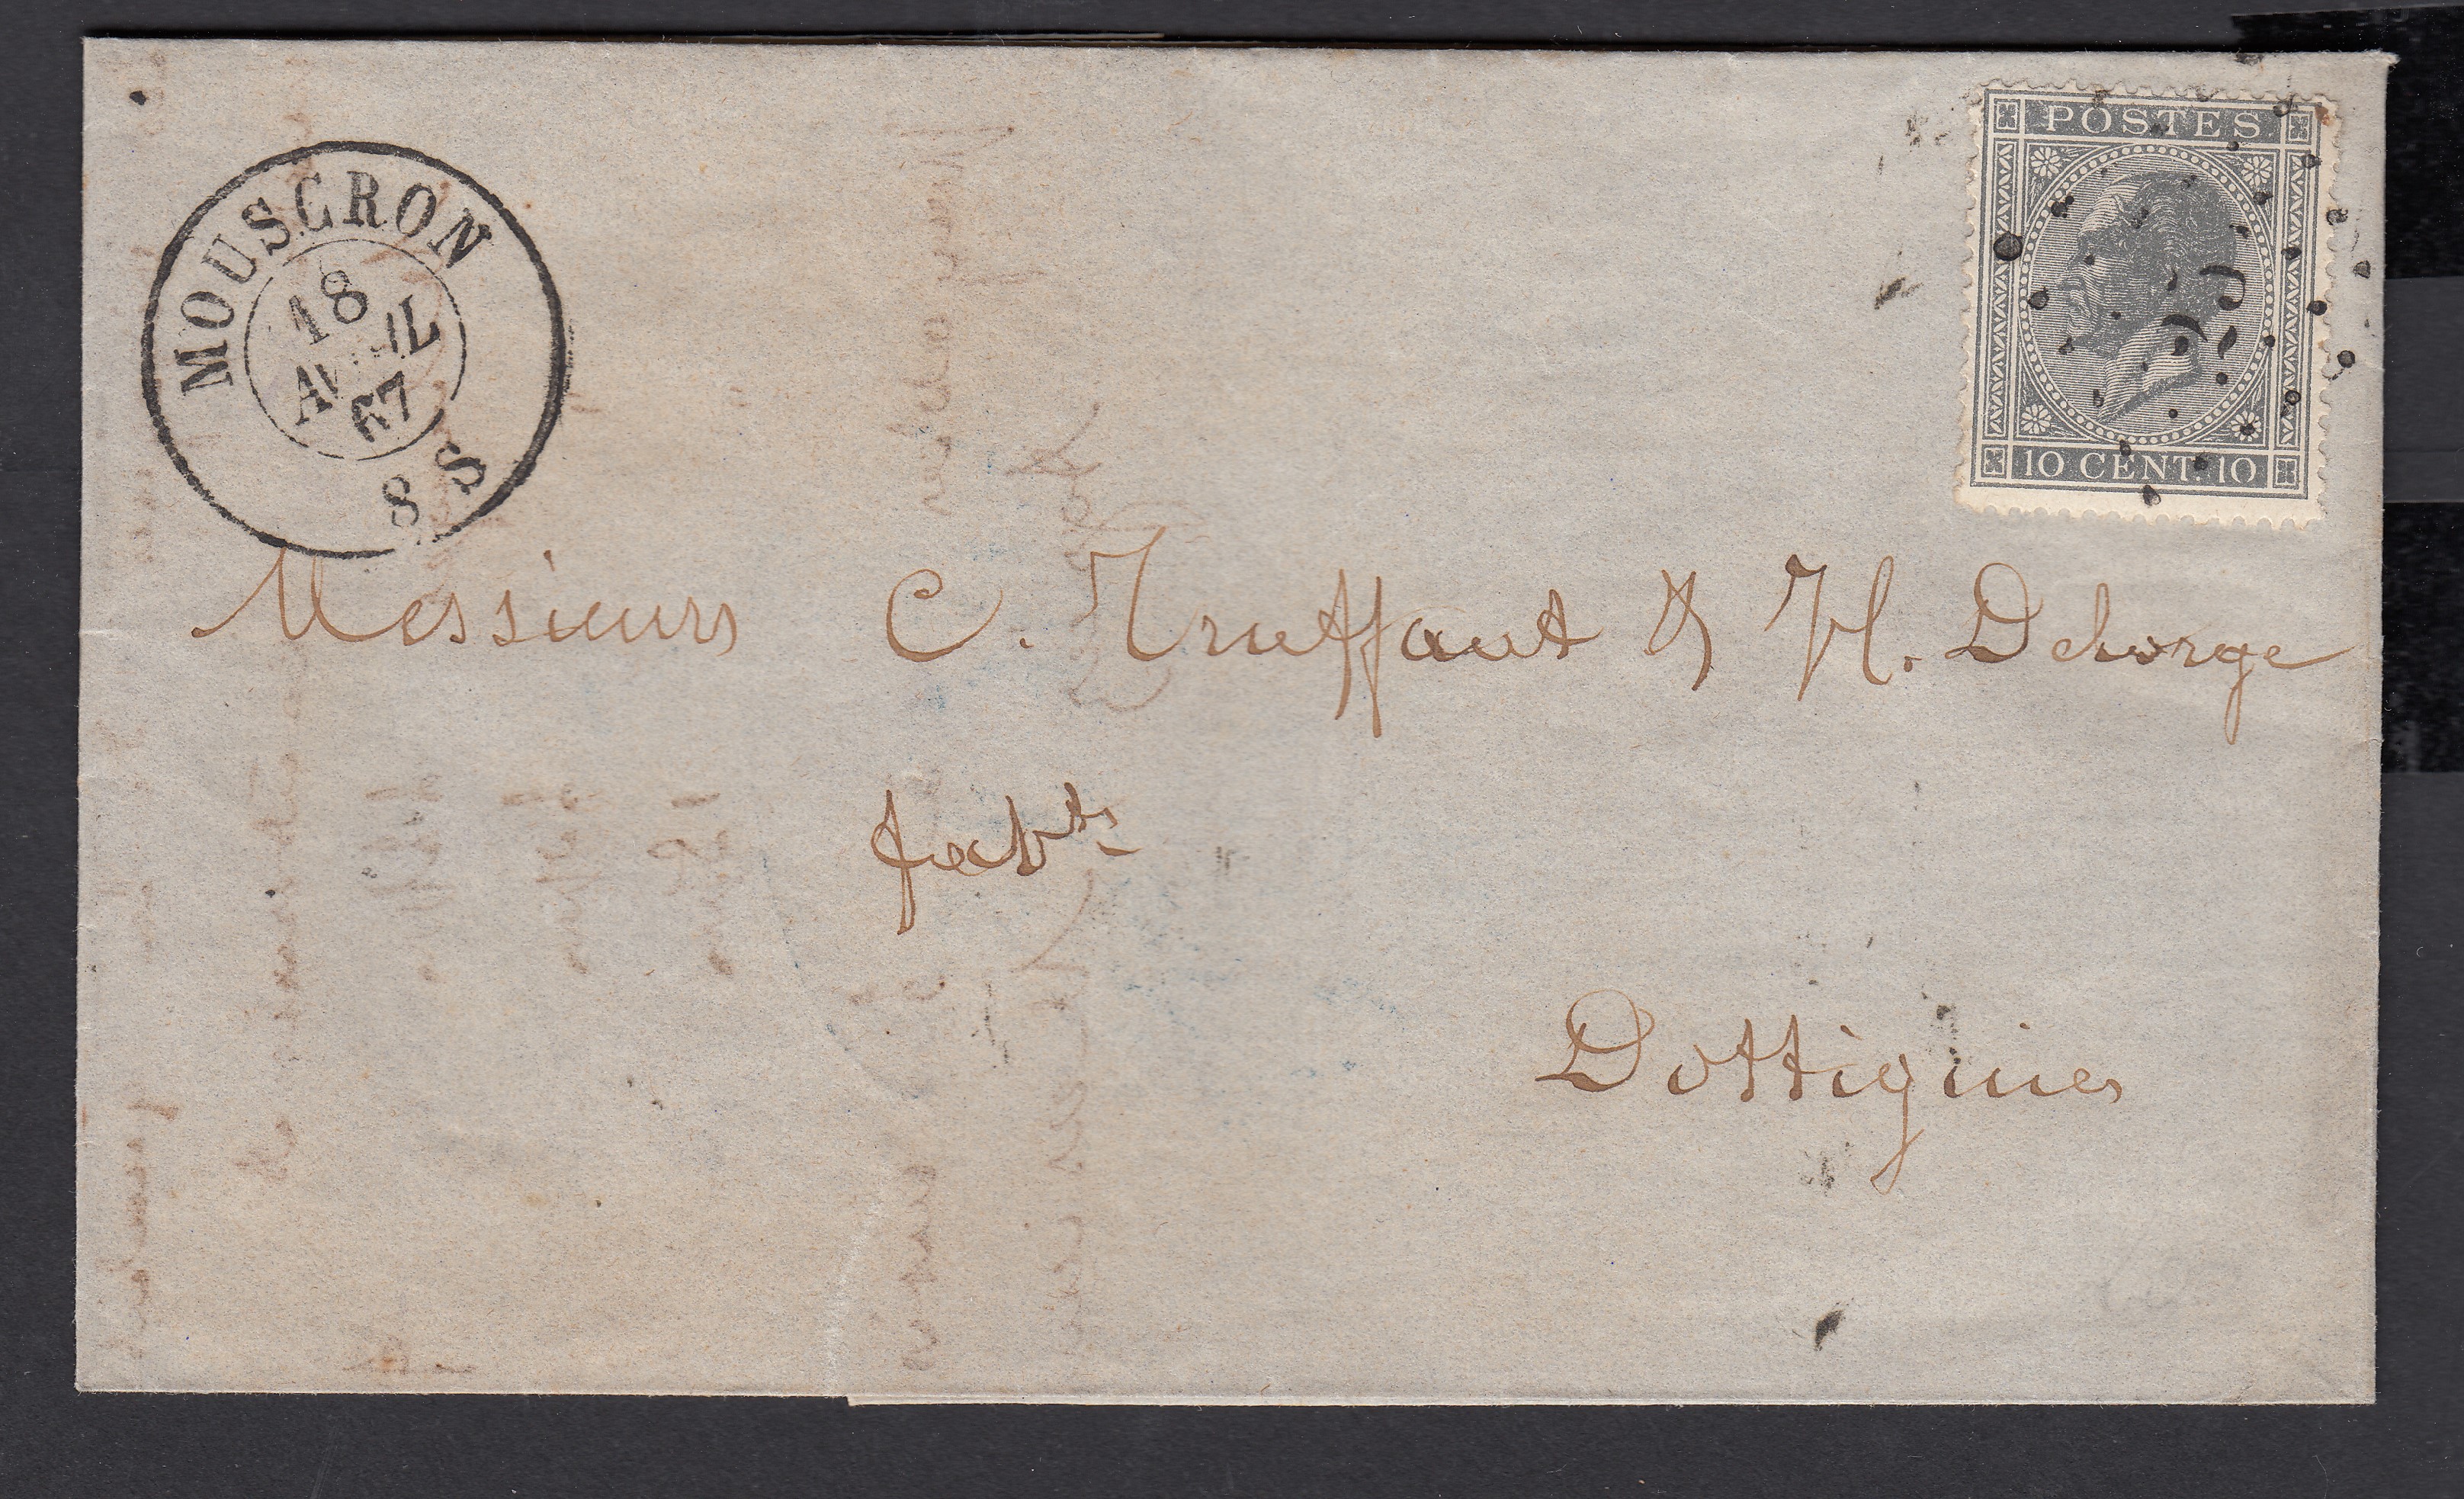 MOUSCRON
18
AVRIL
67
8 S
POSTES
10 CENT. 10
Messieurs C. Truffaut & H. Delorge
fabts
Dottignies